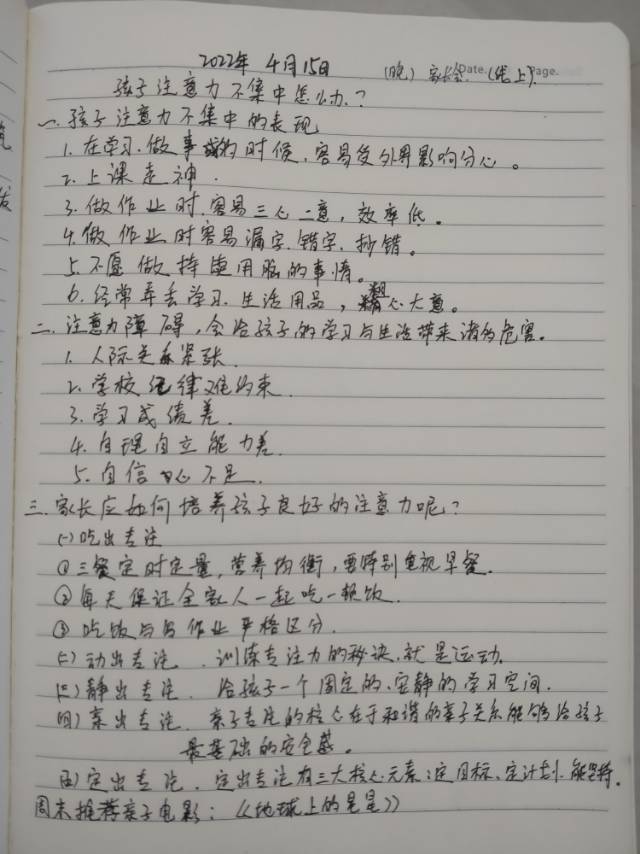 2022年4月15日 (晚) 家长会 Date. (线上) Page.
孩子注意力不集中怎么办?
一.孩子注意力不集中的表现
1.在学习.做事的时候,容易受外界影响分心。
2.上课走神.
3.做作业时.容易三心二意,效率低。
4.做作业时容易漏字.错字.抄错。
5.不愿做持续用脑的事情。
6.经常弄丢学习.生活用品,粗心大意。
二.注意力障碍,会给孩子的学习与生活带来诸多危害。
1.人际关系紧张.
2.学校纪律难约束.
3.学习成绩差.
4.自理自立能力差.
5.自信心不足.
三.家长应如何培养孩子良好的注意力呢?
(一)吃出专注
①三餐定时定量,营养均衡,要特别重视早餐.
②每天保证全家人一起吃一顿饭.
③吃饭与写作业严格区分.
(二)动出专注.训练专注力的秘诀.就是运动.
(三)静出专注.给孩子一个固定的.安静的学习空间.
(四)亲出专注.亲子专注的核心在于和谐的亲子关系能够给孩子
最基础的安全感。
(五)定出专注.定出专注有三大核心元素:定目标.定计划.能坚持.
周末推荐亲子电影:《地球上的星星》